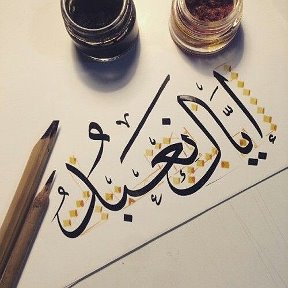 إيَّاكَ نَعْبُدُ